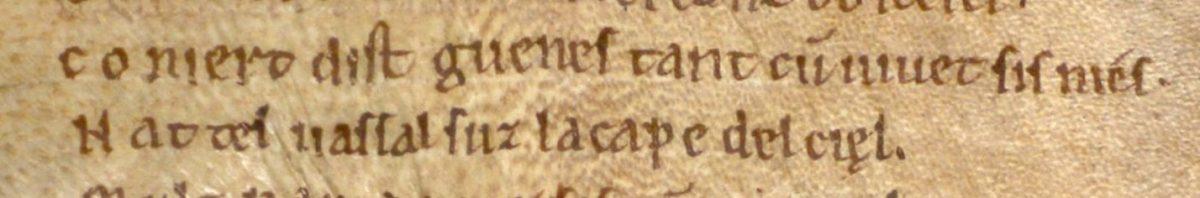 co niert dist guenes tant cū uiuet sis niés.
N at tel uassal suz la cape del cięl.